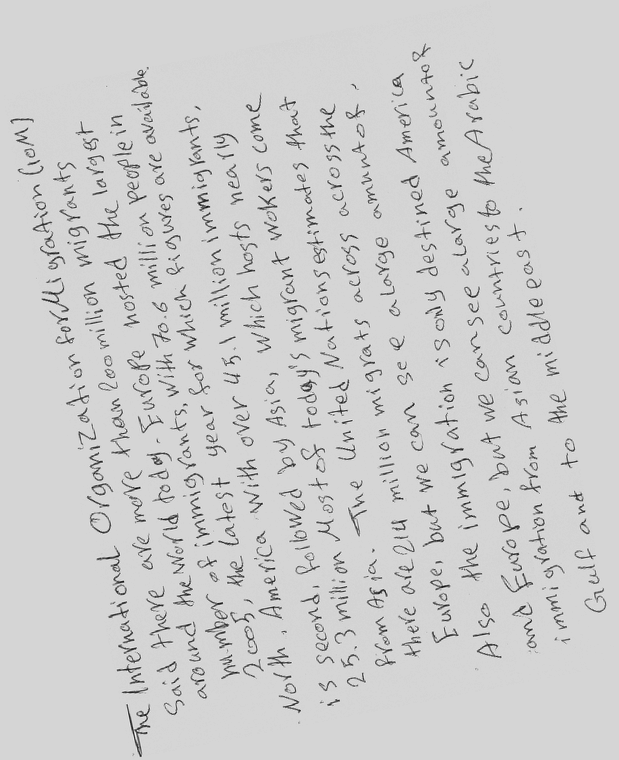 The International Organization for Migration (IOM)
Said there are more than 200 million migrants
around the World today. Europe hosted the largest
number of immigrants, with 70.6 million people in
2005, the latest year for which figures are available.
North, America with over 45.1 million immigrants,
is second, followed by Asia, which hosts nearly
25.3 million Most of today's migrant wokers come
from Asia. The United Nations estimates that
there are 214 million migrats across across the
Europe, but we can see a large amunt of,
Also the immigration is only destined America
and Europe, but we can see a large amount of
immigration from Asian countries to the Arabic
Gulf and to the middle east.